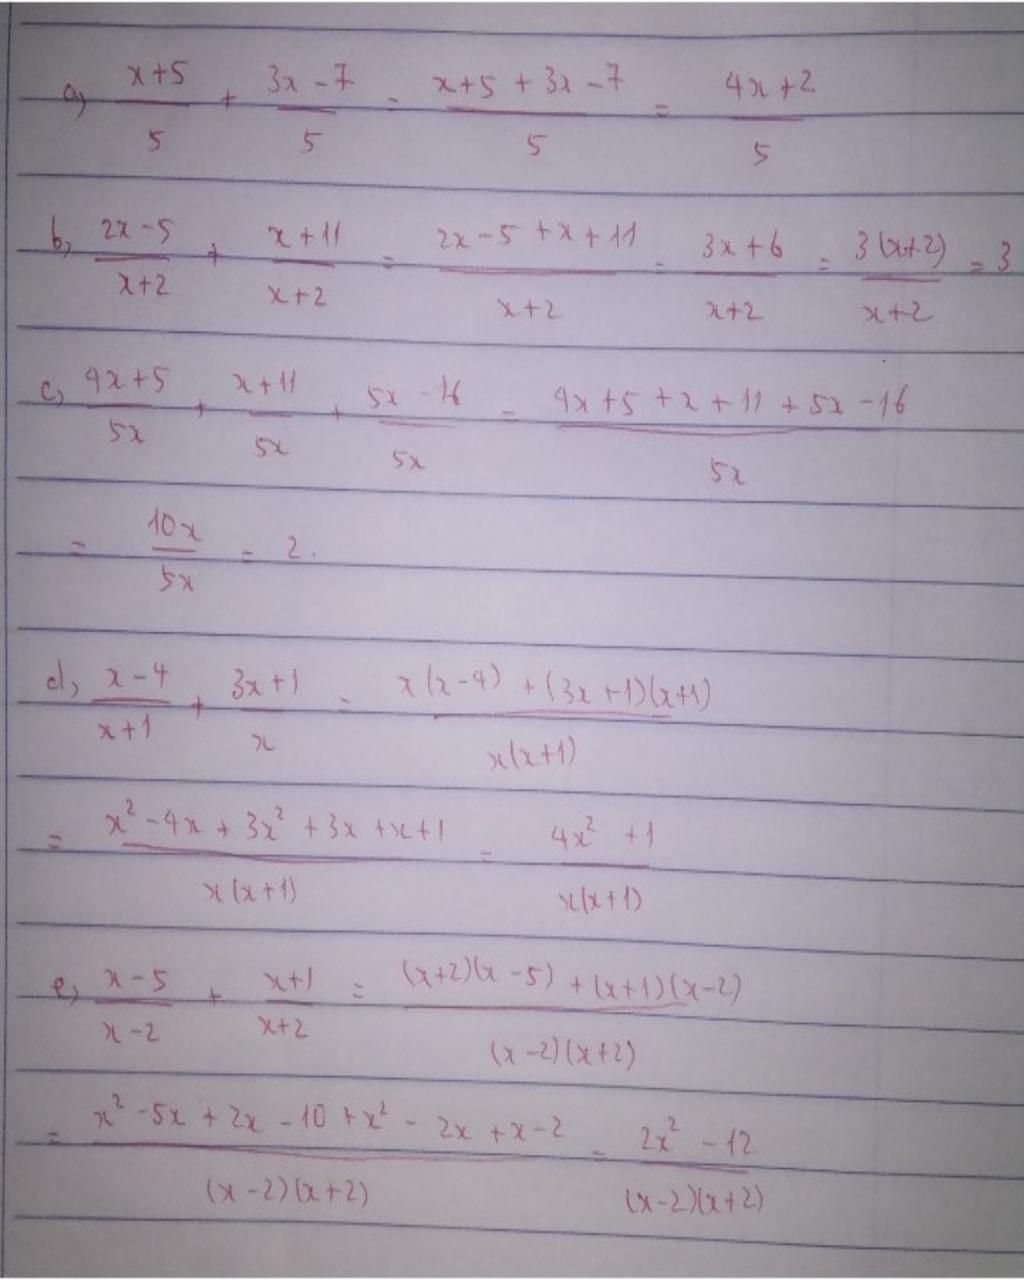 a) (x+5)/5 + (3x-7)/5 = (x+5+3x-7)/5 = (4x+2)/5
b) (2x-5)/(x+2) + (x+11)/(x+2) = (2x-5+x+11)/(x+2) = (3x+6)/(x+2) = 3(x+2)/(x+2) = 3
c) (4x+5)/5x + (x+11)/5x + (5x-16)/5x = (4x+5+x+11+5x-16)/5x
= 10x/5x = 2.
d) (x-4)/(x+1) + (3x+1)/x = (x(x-4)+(3x+1)(x+1))/(x(x+1))
= (x²-4x+3x²+3x+x+1)/(x(x+1)) = (4x²+1)/(x(x+1))
e) (x-5)/(x-2) + (x+1)/(x+2) = ((x+2)(x-5)+(x+1)(x-2))/((x-2)(x+2))
= (x²-5x+2x-10+x²-2x+x-2)/((x-2)(x+2)) = (2x²-12)/((x-2)(x+2))